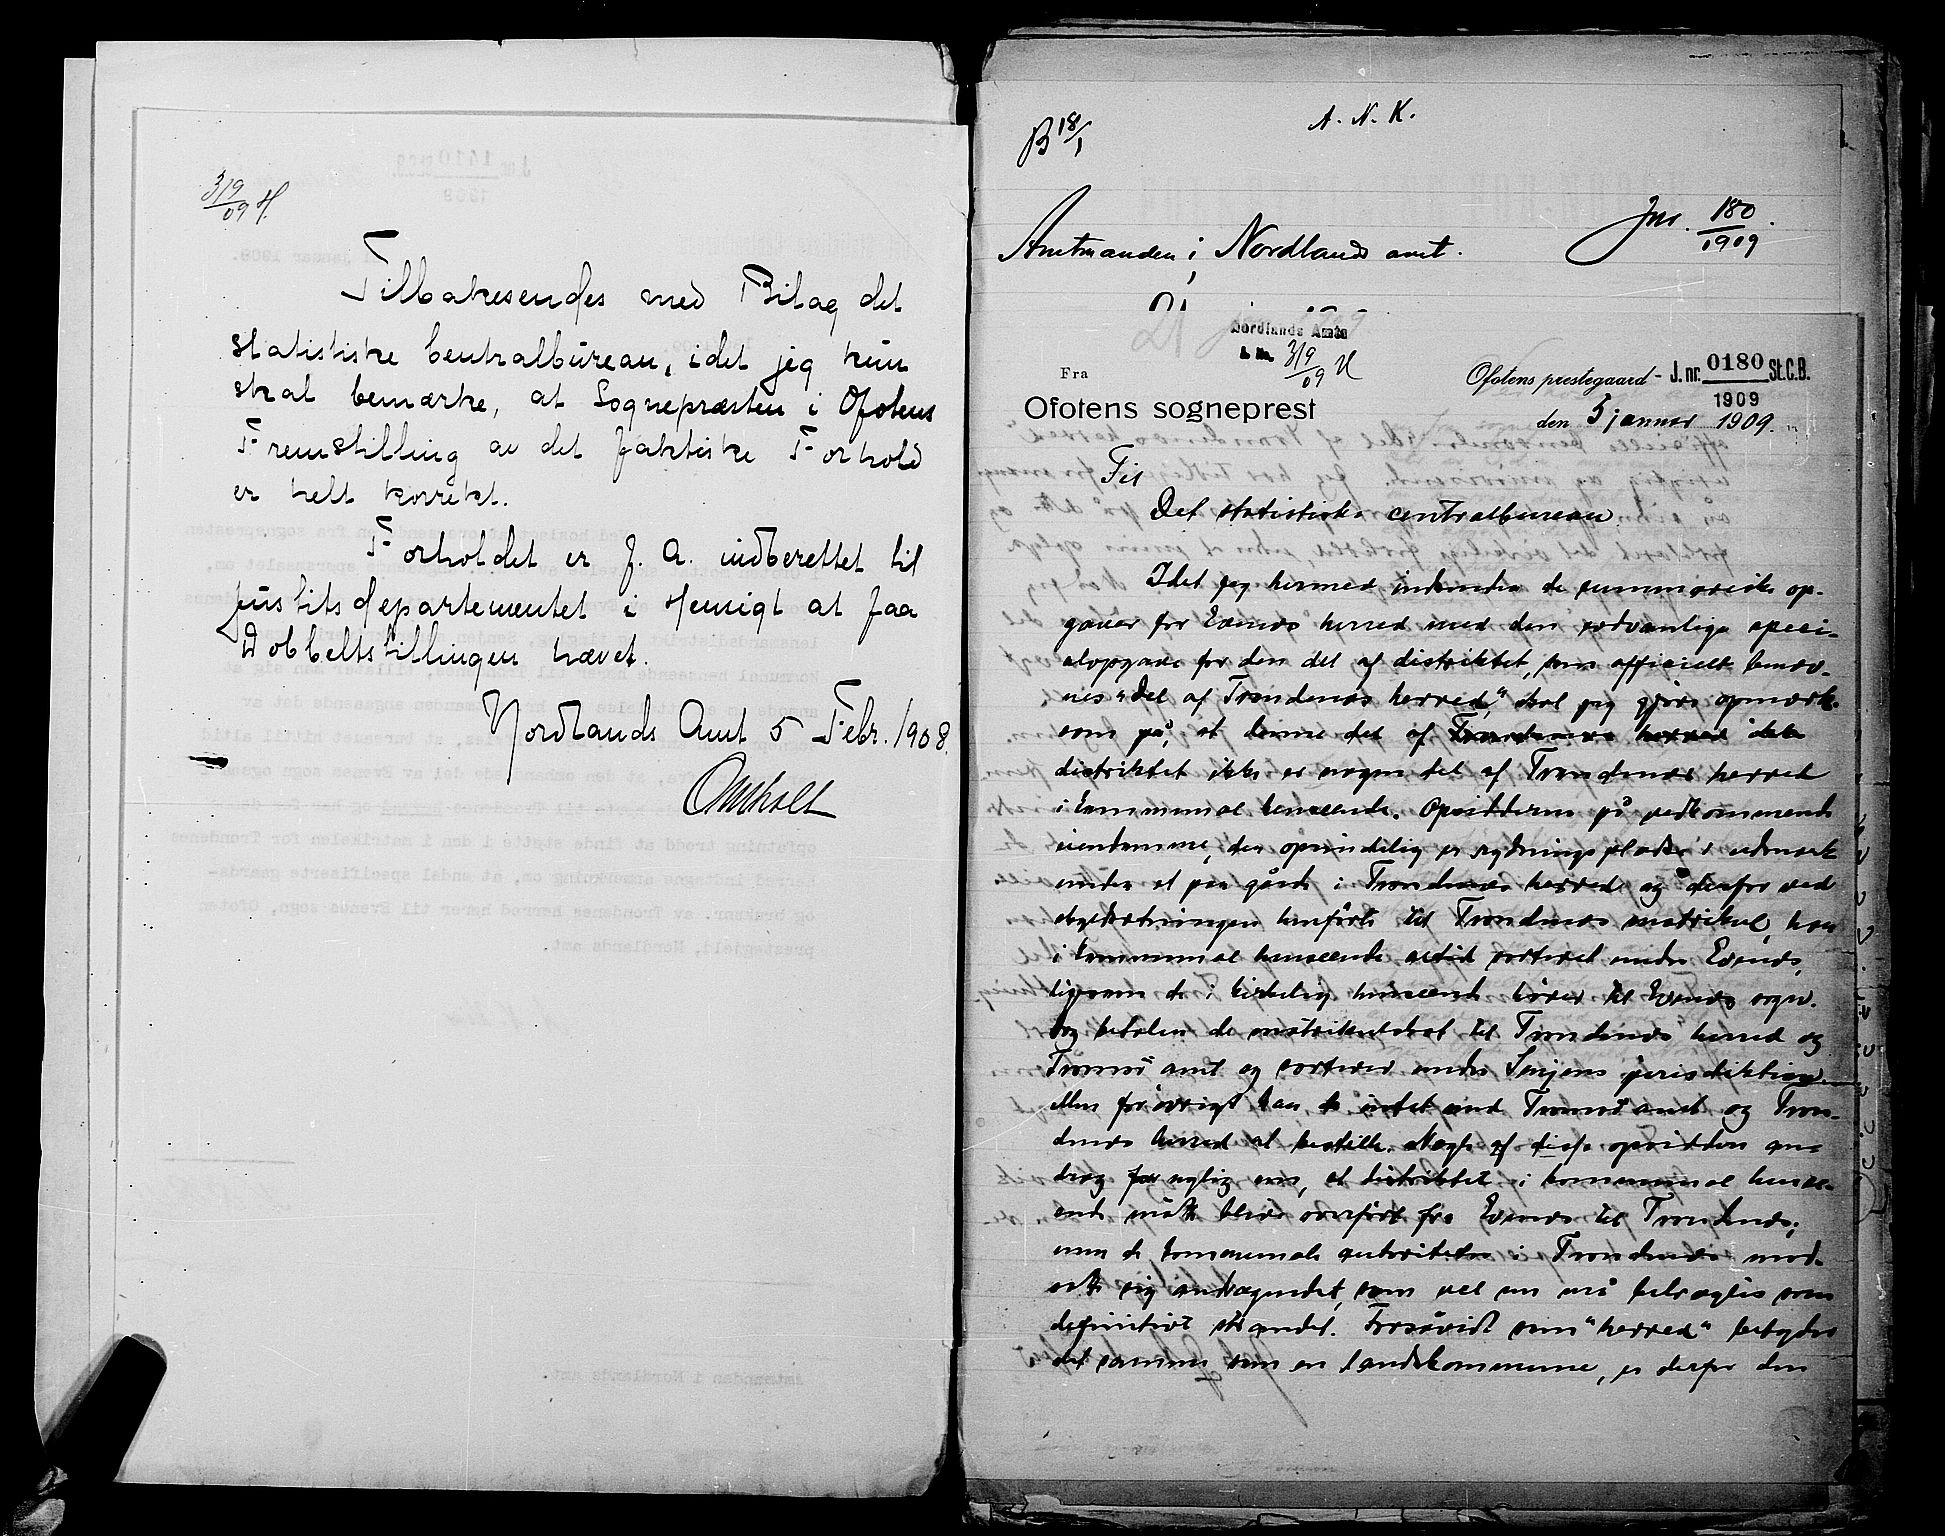 319
09 H.
Tilbakesendes med Bilag det
statistiske Centralbureau, idet jeg kun
skal bemærke, at Sognepræsten i Ofotens
Fremstilling av det faktiske Forhold
er helt korrekt.
Forholdet er f. A. indberettet til
Justitsdepartementet i Hensigt at faa
Dobbeltstillingen hævet.
Nordlands Amt 5 Febr. 1908.
A. N. K.
B 18/1
Jnr. 180
1909
Amtmanden i Nordlands amt.
21
Nordlands Amts
J. No. 319
09 H
Fra
Ofotens sogneprest
Ofotens prestegaard - J. nr. 0180 St.C.B.
1909
den 5 januar 1909.
Til
Det statistiske centralbureau
Idet jeg hermed indsender de summariske op-
gaver for Evenes herred med den sedvanlige speci-
alopgave for den del af distriktet, som officielt benæv-
nes "del af Trondenes herred," skal jeg gjøre opmærk-
som på, at denne del af Trondenes herred dette
distriktet ikke er nogen del af Trondenes herred
i kommunal henseende. Opsidderne på vedkommende
eiendomme, der oprindelig er rydningspladser i udmark
under et par gårde i Trondenes herred og derfor ved
skyldsætningen henførte til Trondenes matrikul, har
i kommunal henseende altid sorteret under Evenes,
ligesom de i kirkelig henseende hører til Evenes sogn.
Og betaler de matrikulskat til Trondenes herred og
Tromsø amt og sorterer under Senjens jurisdiktion.
Men forøvrigt har de intet med Tromsø amt og Tron-
denes herred at bestille. Nogle af disse opsiddere an-
drog for nylig om, at distriktet i kommunal hense-
ende måtte blive overført fra Evenes til Trondenes;
men de kommunale autoriteter i Trondenes mod-
satte sig andragendet, som vel nu må betragtes som
definitivt strandet. Forsåvidt som "herred" betyder
det samme som en landskommune, er derfor den